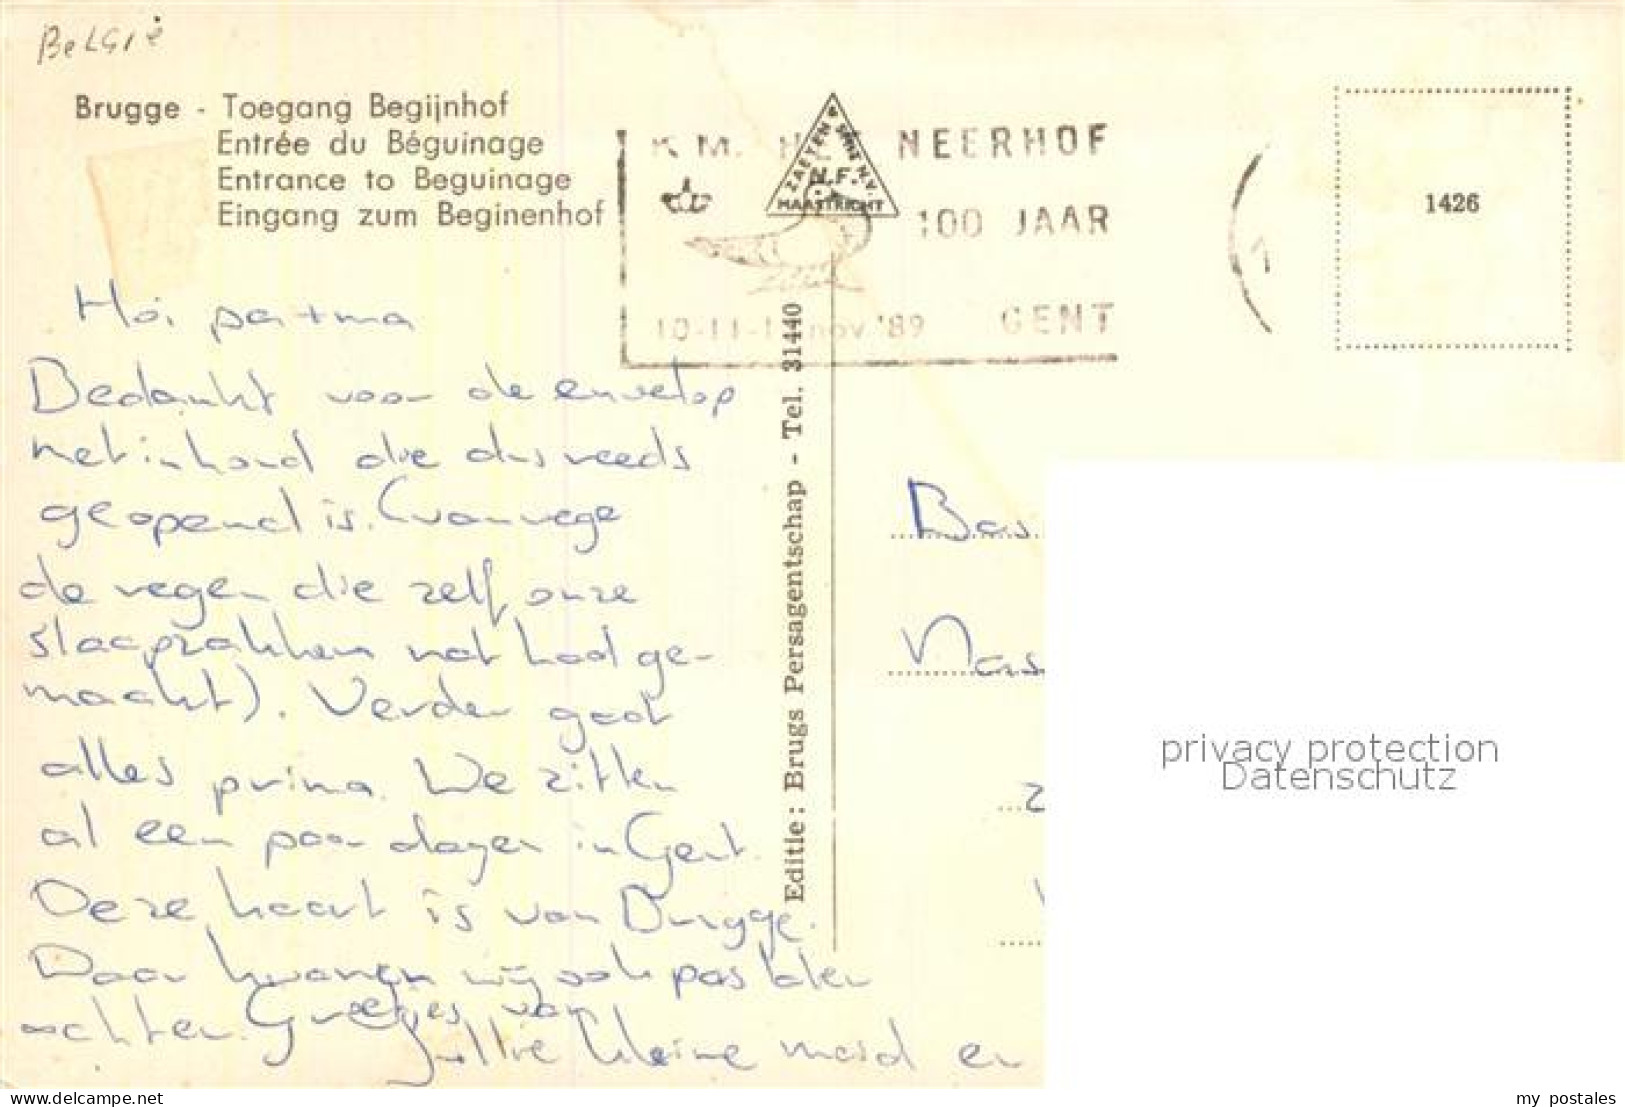 België
Brugge - Toegang Begijnhof
Entrée du Béguinage
Entrance to Beguinage
Eingang zum Beginenhof
K.M. HET NEERHOF
100 JAAR
10-11-1 nov '89 GENT
ZAEYEN & SPITZ N.V.
N.F.
MAASTRICHT
1426
Hoi pa+ma
Bedankt voor de envelop
met inhoud die dus reeds
geopend is. (vanwege
de regen die zelf onze
slaapzakken nat had ge-
maakt). Verder gaat
alles prima. We zitten
al een paar dagen in Gent.
Deze kaart is van Brugge.
Daar kwamen wij ook pas later
achter. Groetjes van
jullie kleine meid en
Editie: Brugs Persagentschap - Tel. 31440
Bas
Nas
privacy protection
Datenschutz
www.delcampe.net
my_postales